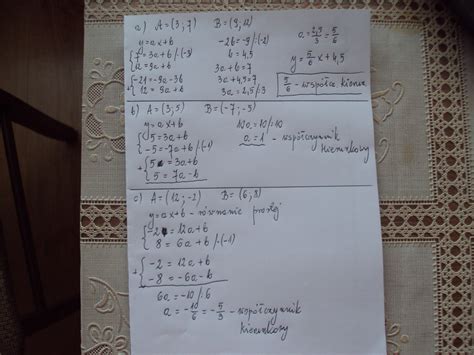 a) A=(3;7) B=(9;12)
y=ax+b
{7=3a+b /·(-3)
{12=9a+b
+{-21=-9a-3b
{12=9a+b
-2b=-9 /:(-2)
b=4,5
3a+b=7
3a+4,5=7
3a=2,5 /:3
a=2,5/3=5/6
y=5/6x+4,5
5/6 - współcz. kierun.
b) A=(3;5) B=(-7;-5)
y=ax+b
{5=3a+b
{-5=-7a+b /·(-1)
+{5=3a+b
{5=7a-b
10a=10 /:10
a=1 - współczynnik
kierunkowy
c) A=(12;-2) B=(6;8)
y=ax+b - równanie prostej
{-2=12a+b
{8=6a+b /·(-1)
+{-2=12a+b
{-8=-6a-b
6a=-10 /:6
a=-10/6=-5/3 - współczynnik
kierunkowy